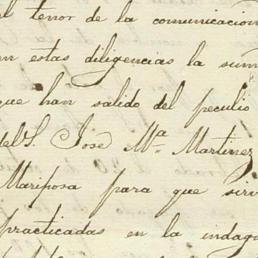 el tenor de la comunicacion
en estas diligencias la sum
que han salido del peculio
del S. José Mª Martinez
Mariposa para que sirv
practicadas en la indag